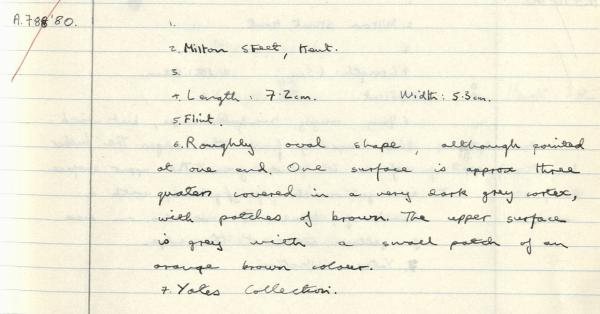 A.788'80.
1.
2. Milton Street, Kent.
3.
4. Length : 7.2cm. Width : 5.3cm.
5. Flint.
6. Roughly oval shape, although pointed
at one end. One surface is approx three
quaters covered in a very dark grey cortex,
with patches of brown. The upper surface
is grey with a small patch of an
orange brown colour.
7. Yates Collection.